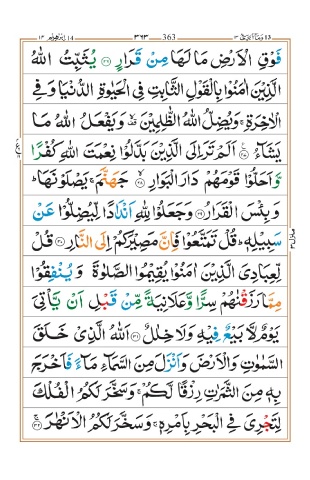 ابرٰهيم ١٤ 363 ٣٦٣ وما ابرئ ١٣
فَوْقِ الْاَرْضِ مَا لَهَا مِنْ قَرَارٍ ﴿۲۶﴾ يُثَبِّتُ اللّٰهُ
الَّذِيْنَ اٰمَنُوْا بِالْقَوْلِ الثَّابِتِ فِى الْحَيٰوةِ الدُّنْيَا وَفِى
الْاٰخِرَةِ ۚ وَيُضِلُّ اللّٰهُ الظّٰلِمِيْنَ ۙ وَيَفْعَلُ اللّٰهُ مَا
يَشَآءُ ﴿۲۷﴾ اَلَمْ تَرَ اِلَى الَّذِيْنَ بَدَّلُوْا نِعْمَتَ اللّٰهِ كُفْرًا
وَّاَحَلُّوْا قَوْمَهُمْ دَارَ الْبَوَارِ ﴿۲۸﴾ جَهَنَّمَ ۚ يَصْلَوْنَهَا ؕ
وَبِئْسَ الْقَرَارُ ﴿۲۹﴾ وَجَعَلُوْا لِلّٰهِ اَنْدَادًا لِّيُضِلُّوْا عَنْ
سَبِيْلِهٖ ؕ قُلْ تَمَتَّعُوْا فَاِنَّ مَصِيْرَكُمْ اِلَى النَّارِ ﴿۳۰﴾ قُلْ
لِّعِبَادِىَ الَّذِيْنَ اٰمَنُوْا يُقِيْمُوا الصَّلٰوةَ وَيُنْفِقُوْا
مِمَّا رَزَقْنٰهُمْ سِرًّا وَّعَلَانِيَةً مِّنْ قَبْلِ اَنْ يَّاْتِىَ
يَوْمٌ لَّا بَيْعٌ فِيْهِ وَلَا خِلٰلٌ ﴿۳۱﴾ اَللّٰهُ الَّذِىْ خَلَقَ
السَّمٰوٰتِ وَالْاَرْضَ وَاَنْزَلَ مِنَ السَّمَآءِ مَآءً فَاَخْرَجَ
بِهٖ مِنَ الثَّمَرٰتِ رِزْقًا لَّكُمْ ۚ وَسَخَّرَ لَكُمُ الْفُلْكَ
لِتَجْرِىَ فِى الْبَحْرِ بِاَمْرِهٖ ۚ وَسَخَّرَ لَكُمُ الْاَنْهٰرَ ﴿۳۲﴾